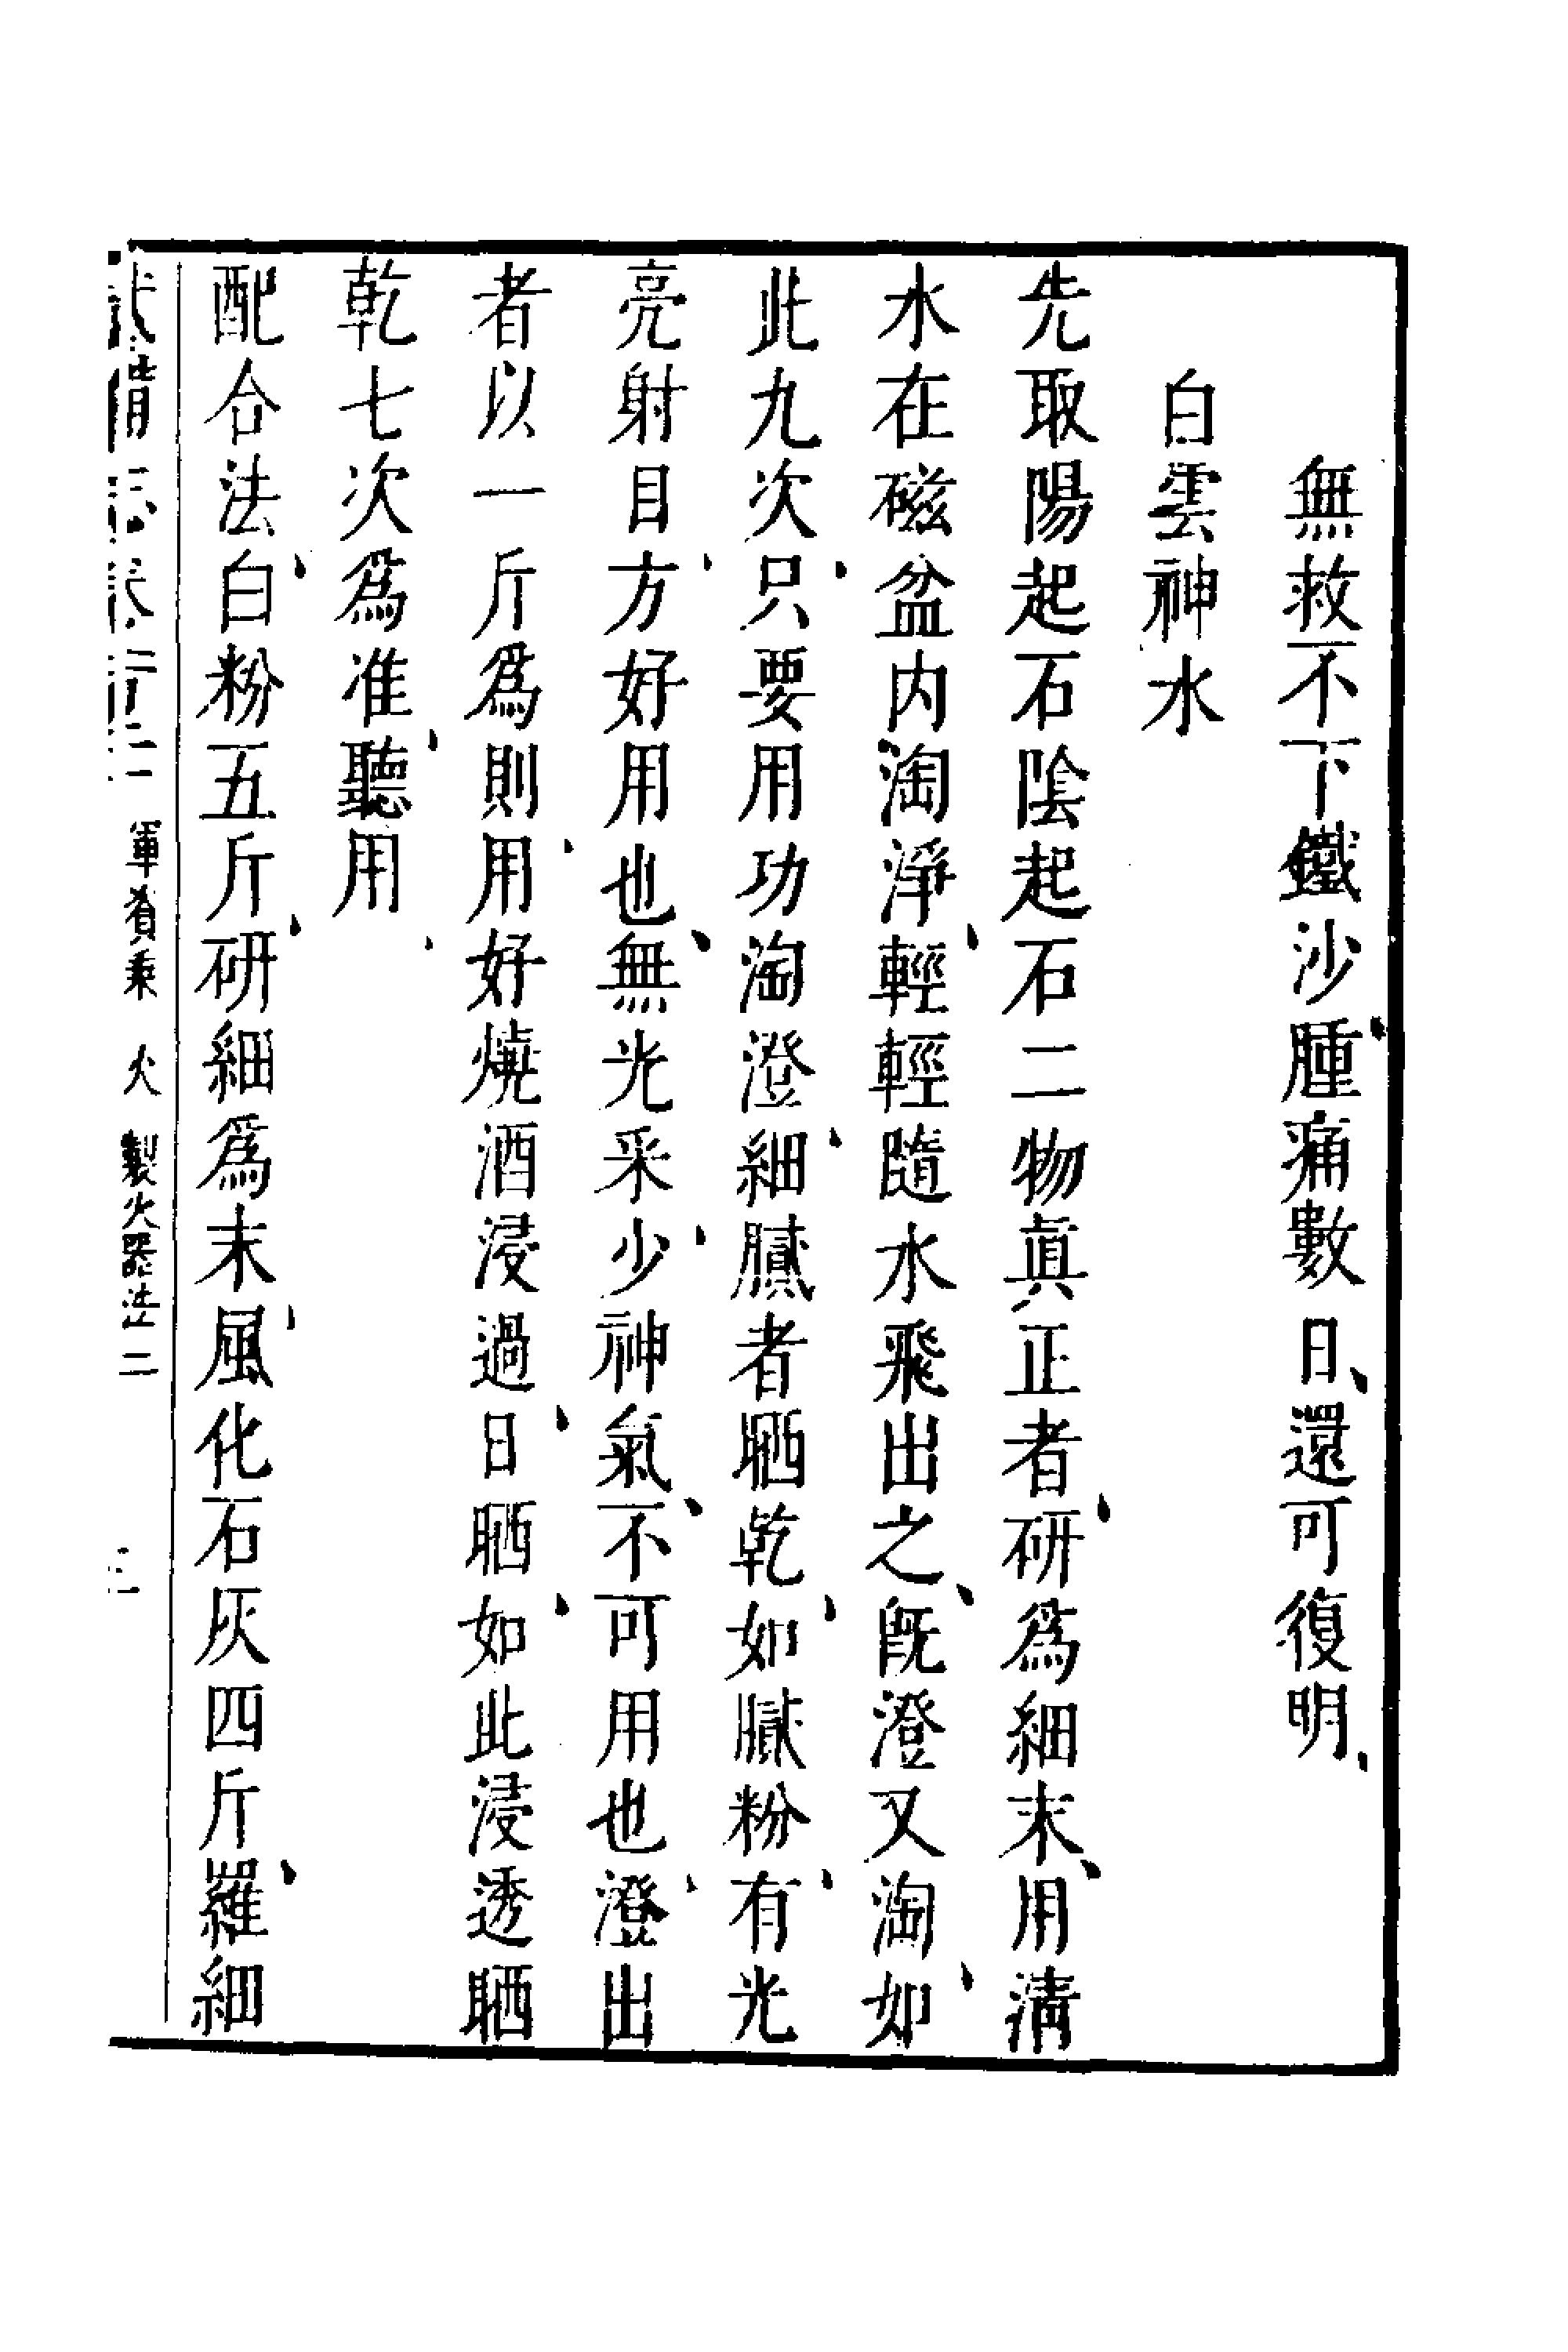 無救不下鐵沙腫痛數日、還可復明、
白雲神水
先取陽起石陰起石二物眞正者、研爲細末、用淸
水在磁盆内淘淨、輕輕隨水飛出之、旣澄又淘、如
此九次、只要用功淘澄、細膩者晒乾、如膩粉有、光
亮射目、方好用也、無光采少、神氣不、可用也澄、出
者以一斤爲則、用好燒酒浸過、日晒、如此浸透晒
乾七次爲准、聽用、
配合法、白粉五斤、研細爲末、風化石灰四斤、羅細
武備志卷 軍資乘 火 製火器法二